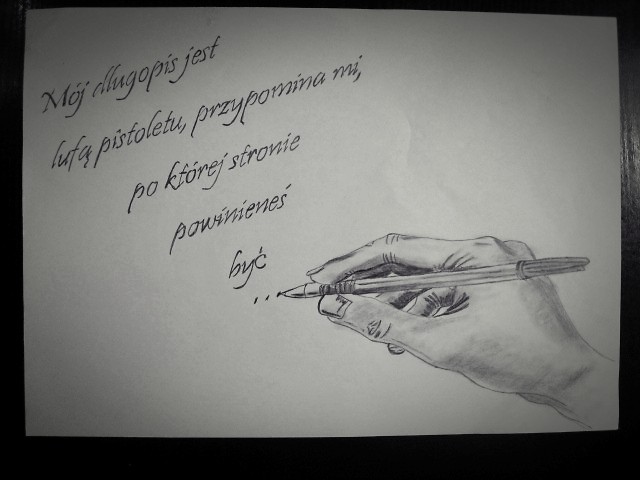 Mój długopis jest
lufą pistoletu, przypomina mi,
po której stronie
powinieneś
być
...